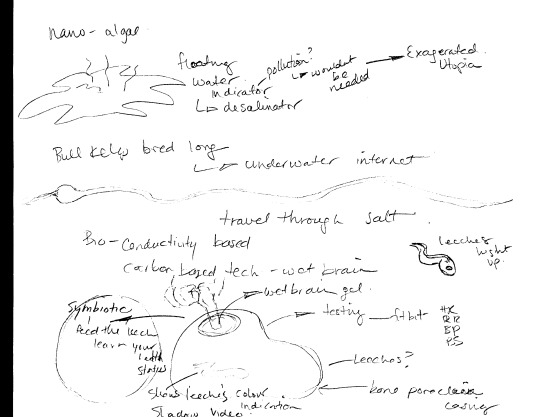 nano-algae
floating
water
indicator
pollution?
↳ wouldn't
be
needed
Exagerated
Utopia
↳ desalinator
Bull Kelp bred long
↳ underwater internet
travel through salt.
Bio-Conductivity based
carbon based tech - wet brain
leeches
light
up.
wetbrain gel.
Symbiotic
feed the leech
learn your
health
status
testing — fitbit
HR
RR
BP
leeches?
bone porcelain
casing
shows leech's colour
indication
shadow video